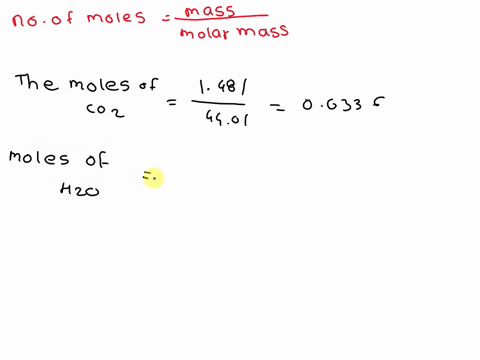 no. of moles = mass / molar mass
The moles of CO2 = 1.481 / 44.01 = 0.0336
moles of H2O =